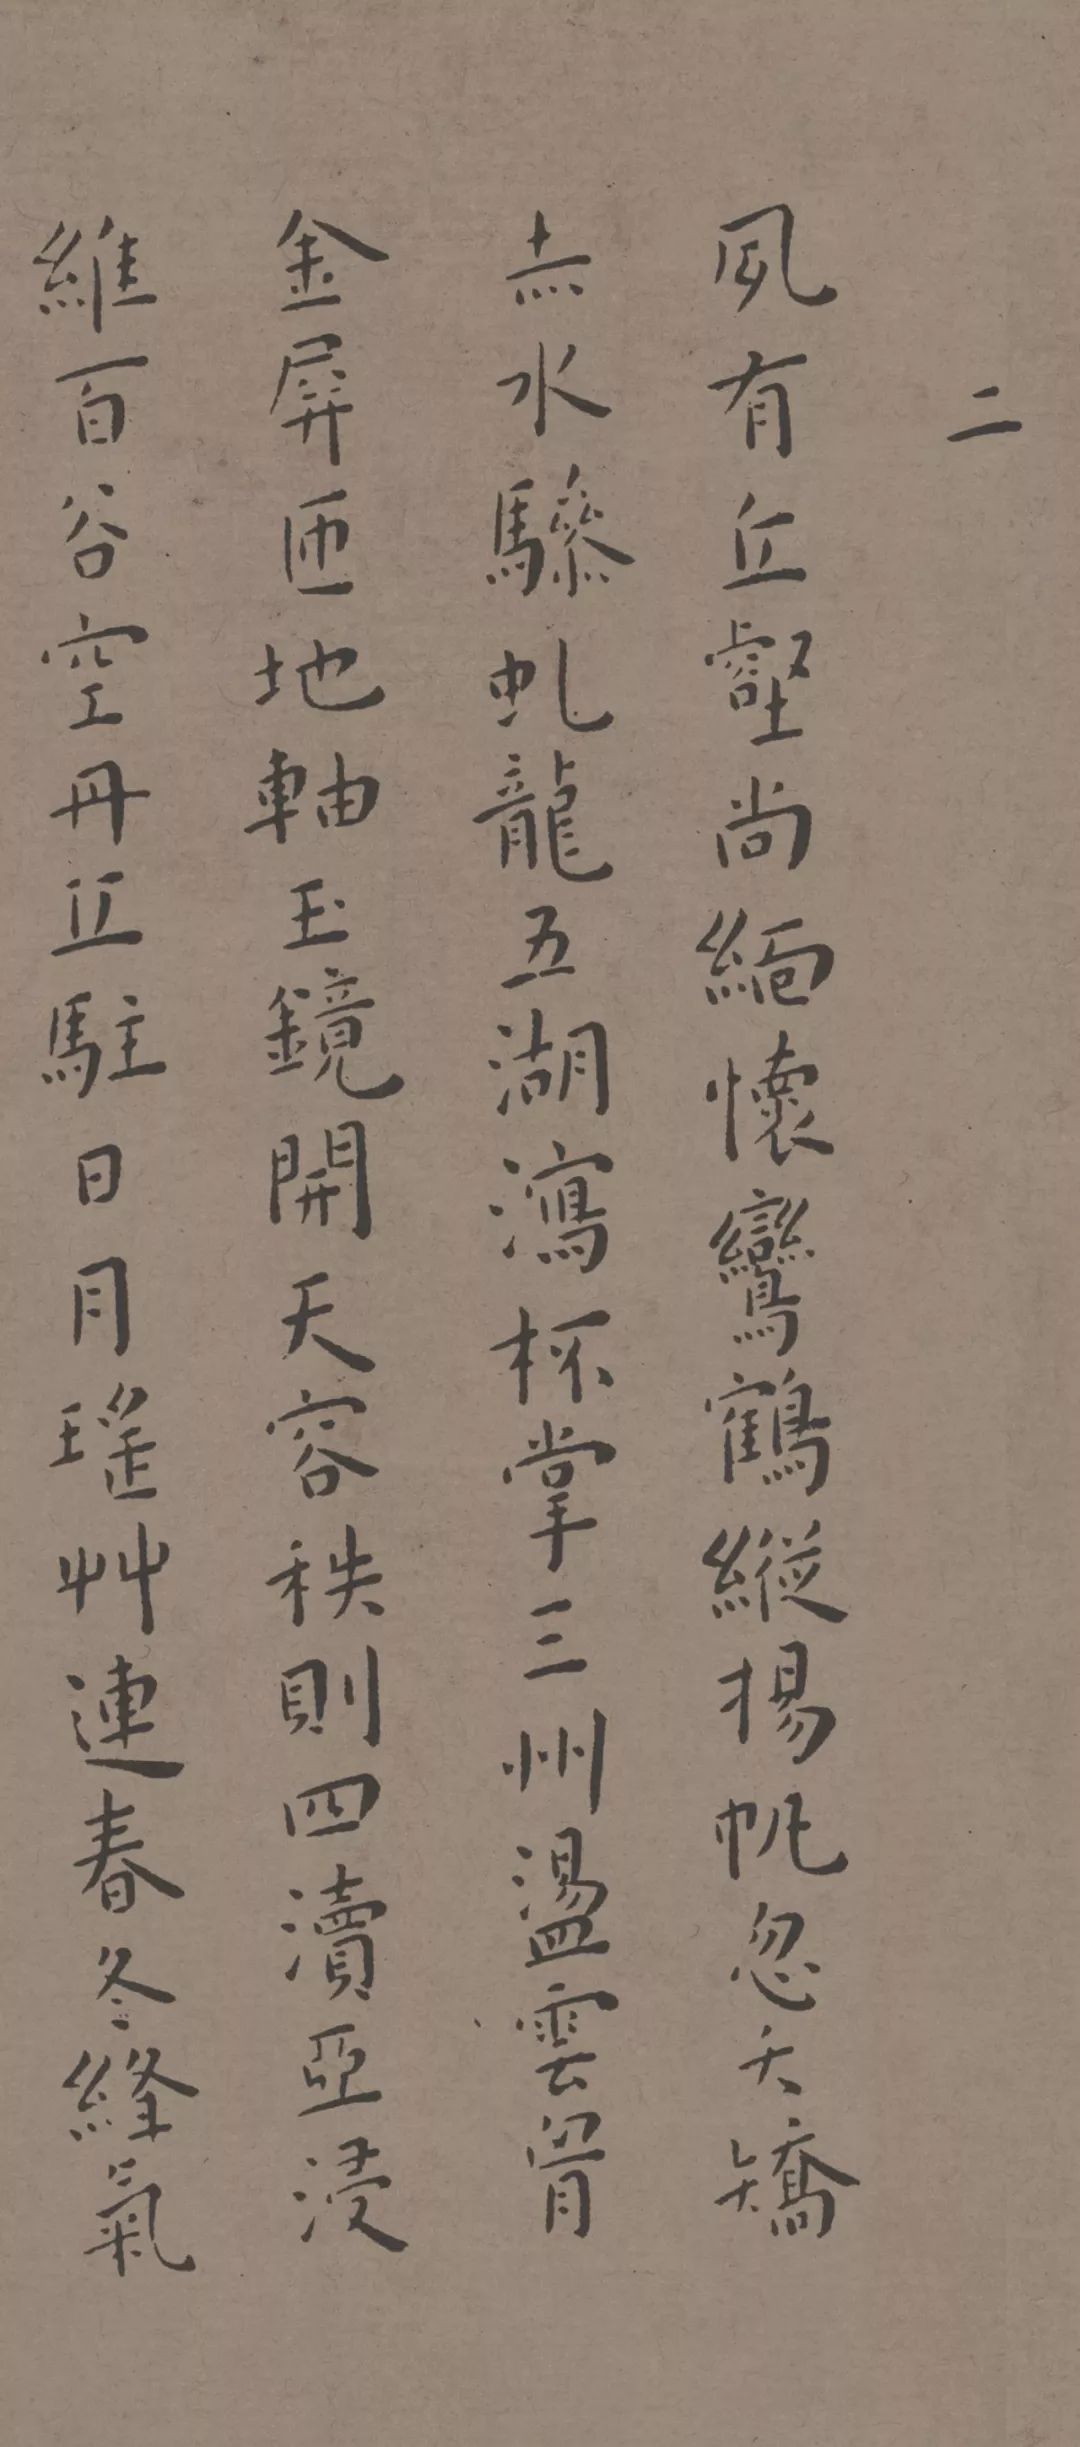 二
夙有丘壑尚緬懷鸞鶴縱揚帆忽夭矯
赤水驂虬龍五湖瀉杯掌三州盪雲胷
金屏匝地軸玉鏡開天容秩則四瀆亞浸
維百谷空丹丘駐日月瑤艸連春冬絳氣